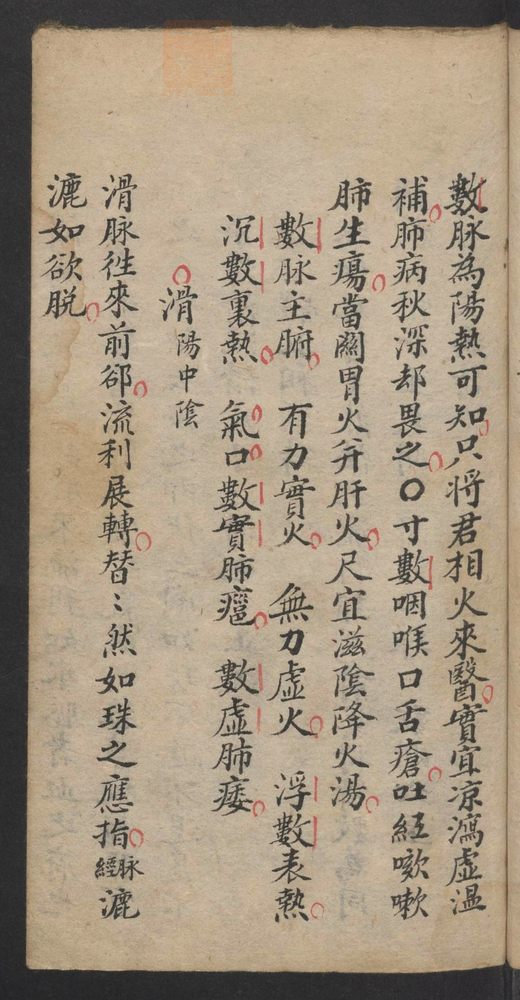 數脉為陽熱可知只将君相火來醫實宜凉瀉虛温
補肺病秋深却畏之〇寸數咽喉口舌瘡吐紅咳嗽
肺生瘍當關胃火并肝火尺宜滋陰降火湯
數脉主腑 有力實火 無力虛火 浮數表熱
沉數裏熱 氣口數實肺癰 數虛肺痿
滑陽中陰
滑脉徃來前郤流利展轉替〻然如珠之應指脉經漉
漉如欲脱